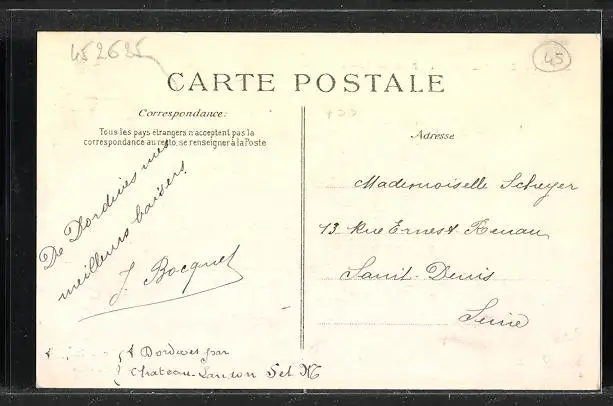 452625
45
CARTE POSTALE
Correspondance:
Tous les pays étrangers n'acceptent pas la
correspondance au recto, se renseigner à la Poste
De Dordives mes
meilleurs baisers
J. Bocquet
Adresse
Mademoiselle Scheyer
13 Rue Ernest Renan
Saint-Denis
Seine
à Dordives par
Chateau-Landon S et M